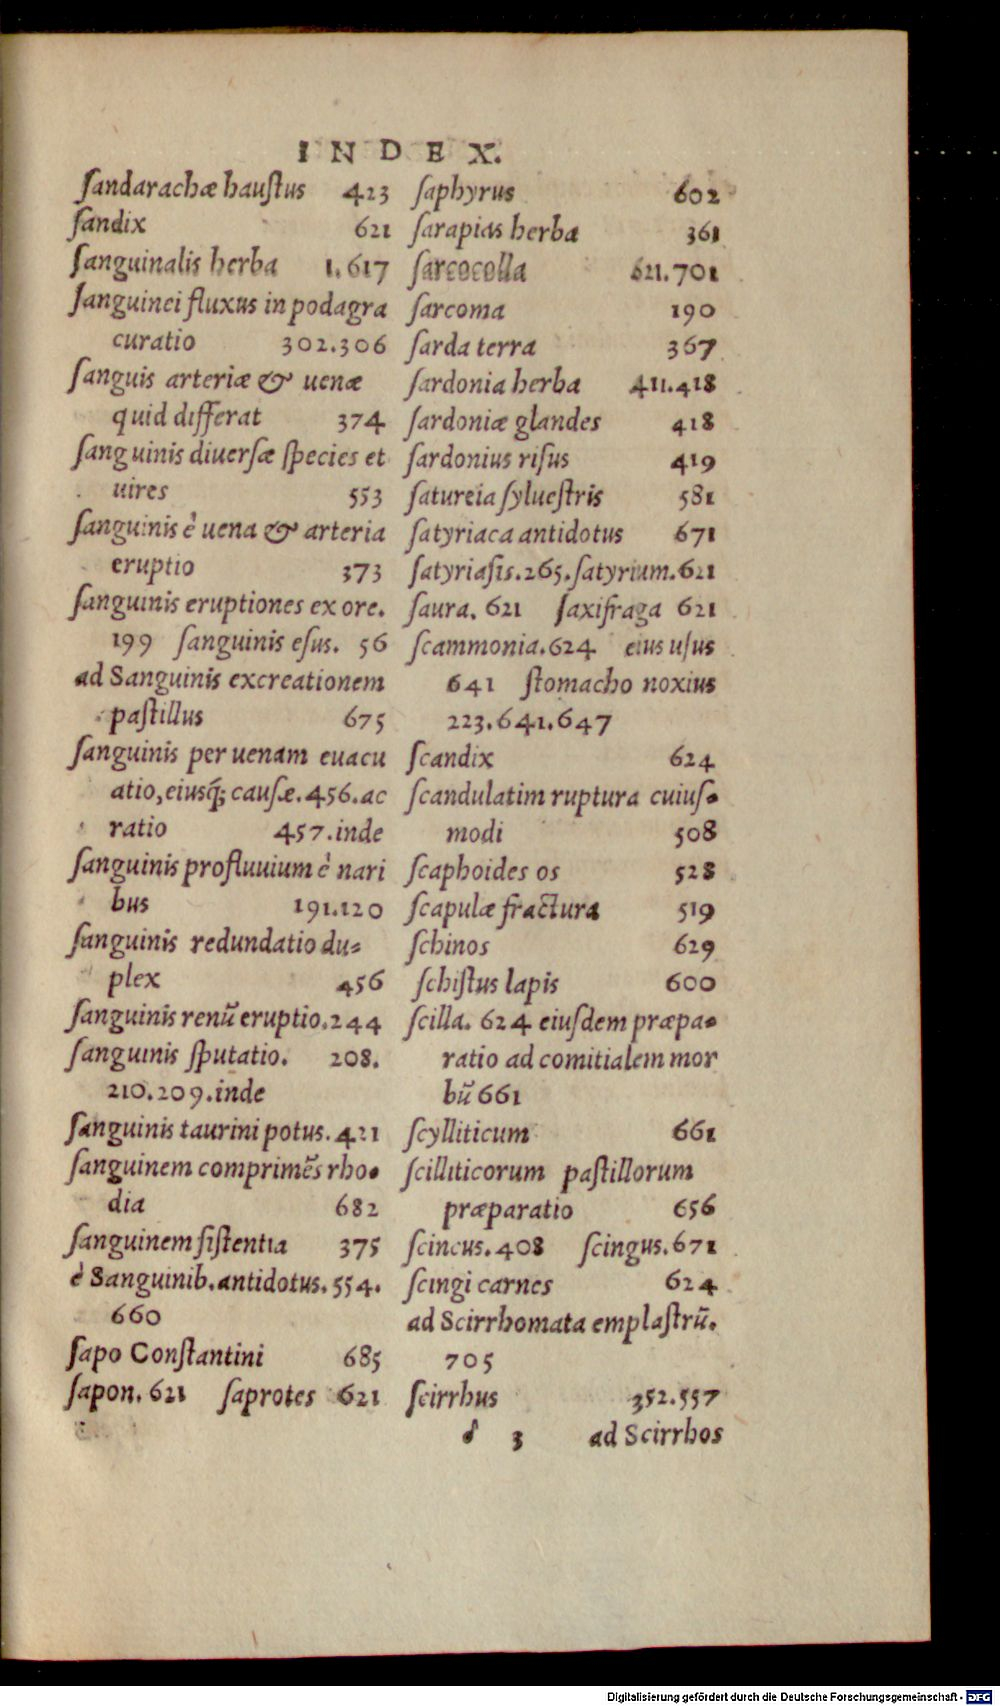 INDEX.
ſandarachæ hauſtus 423
ſandix 621
ſanguinalis herba 1.617
ſanguinei fluxus in podagra
curatio 302.306
ſanguis arteriæ & uenæ
quid differat 374
ſanguinis diuerſæ ſpecies et
uires 553
ſanguinis è uena & arteria
eruptio 373
ſanguinis eruptiones ex ore.
199 ſanguinis eſus. 56
ad Sanguinis excreationem
paſtillus 675
ſanguinis per uenam euacu
atio, eiusq́; cauſæ. 456. ac
ratio 457. inde
ſanguinis profluuium è nari
bus 191.120
ſanguinis redundatio du⸗
plex 456
ſanguinis renũ eruptio. 244
ſanguinis ſputatio. 208.
210.209. inde
ſanguinis taurini potus. 421
ſanguinem comprimẽs rho⸗
dia 682
ſanguinem ſiſtentia 375
è Sanguinib. antidotus. 554.
660
ſapo Conſtantini 685
ſapon. 621 ſaprotes 621
ſaphyrus 602
ſarapias herba 361
ſarcocolla 621.701
ſarcoma 190
ſarda terra 367
ſardonia herba 411.418
ſardoniæ glandes 418
ſardonius riſus 419
ſatureia ſylueſtris 581
ſatyriaca antidotus 671
ſatyriaſis. 265. ſatyrium. 621
ſaura. 621 ſaxifraga 621
ſcammonia. 624 eius uſus
641 ſtomacho noxius
223.641.647
ſcandix 624
ſcandulatim ruptura cuiuſ⸗
modi 508
ſcaphoides os 528
ſcapulæ fractura 519
ſchinos 629
ſchiſtus lapis 600
ſcilla. 624 eiuſdem præpa⸗
ratio ad comitialem mor
bũ 661
ſcylliticum 661
ſcilliticorum paſtillorum
præparatio 656
ſcincus. 408 ſcingus. 671
ſcingi carnes 624
ad Scirrhomata emplaſtrũ.
705
ſcirrhus 352.557
3 ad Scirrhos
Digitalisierung gefördert durch die Deutsche Forschungsgemeinschaft - DFG